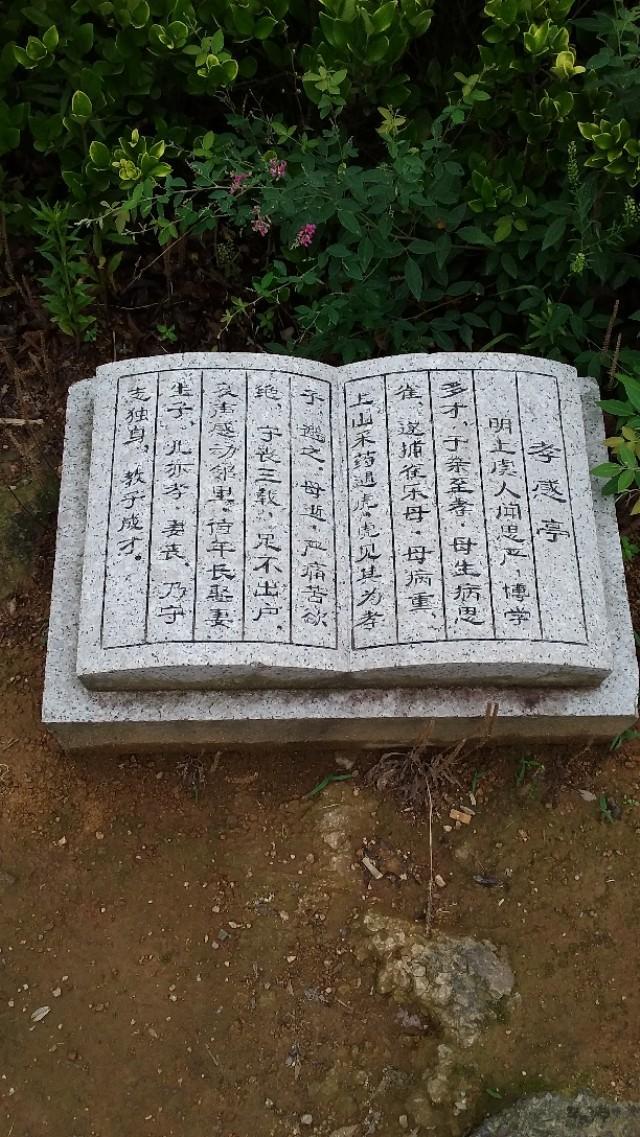 孝感亭
明上虞人闻思严，博学
多才，于亲至孝，母生病思
雀，遂捕雀乐母，母病重，
上山采药遇虎，虎见其为孝
子，避之。母逝，严痛苦欲
绝，守丧三载，足不出户，
哀声感动邻里，待年长娶妻
生子，儿亦孝，妻丧，乃守
志独身，教子成才。